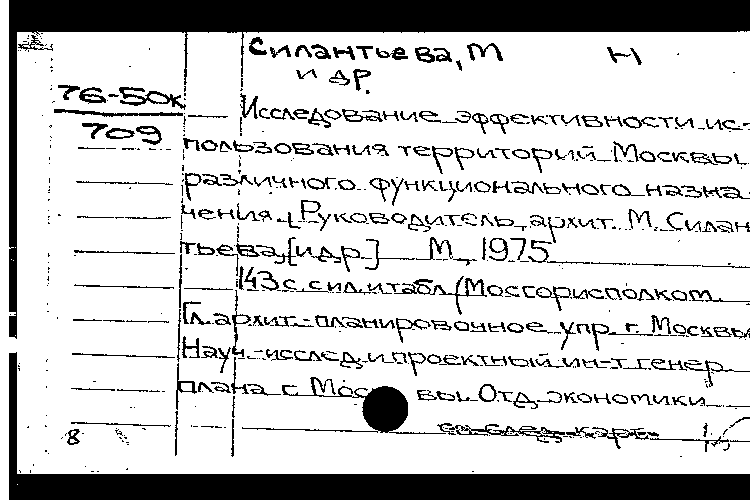 Силантьева, М Н
и др.
76-50к
709
Исследование эффективности ис-
пользования территорий Москвы
различного функционального назна
чения. [Руководитель архит. М. Силан
тьева, [и др.] М., 1975
143 с. с ил. и табл (Мосгорисполком.
Гл. архит.-планировочное упр. г. Москвы
Науч.-исслед. и проектный ин-т генер.
плана г. Москвы. Отд. экономики
см след. карт.
8